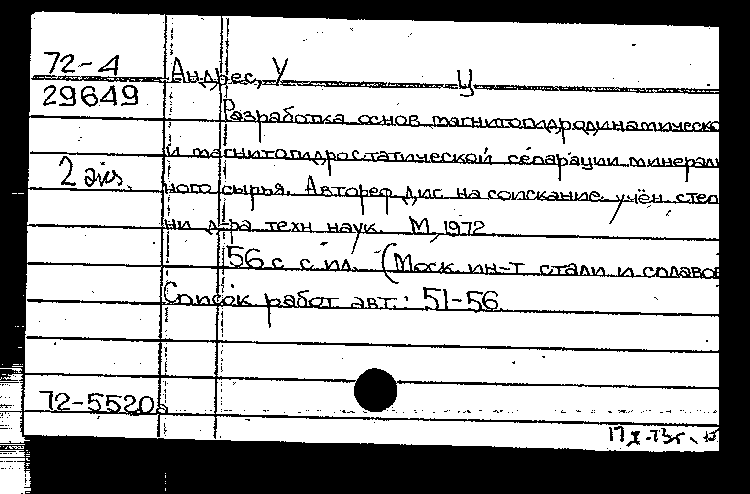 72-4 Андрес, У Ц
29649
Разработка основ магнитогидродинамическо
и магнитогидростатической сепарации минераль
2 экз.
ного сырья. Автореф дис. на соискание учён. степе
ни д-ра техн наук. М, 1972
56 с. с ил. (Моск. ин-т стали и сплавов
Список работ авт.: 51-56.
72-5520а